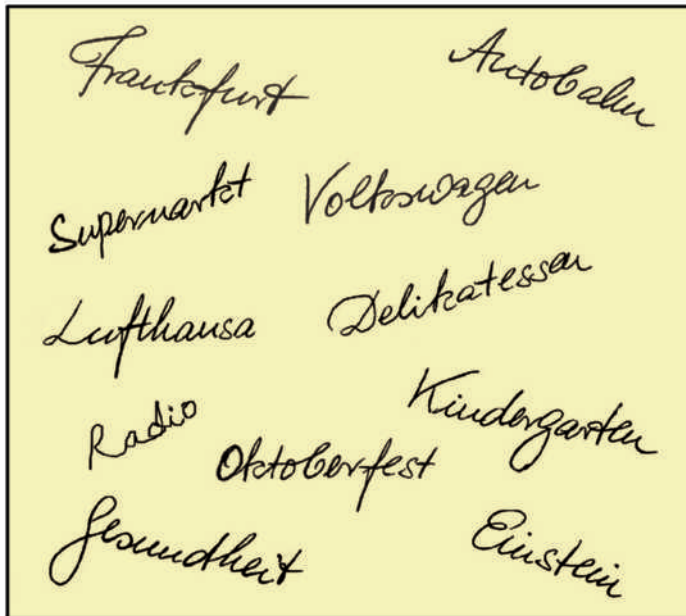 Frankfurt Autobahn
Supermarkt Volkswagen
Lufthansa Delikatessen
Radio Kindergarten
Oktoberfest
Gesundheit Einstein